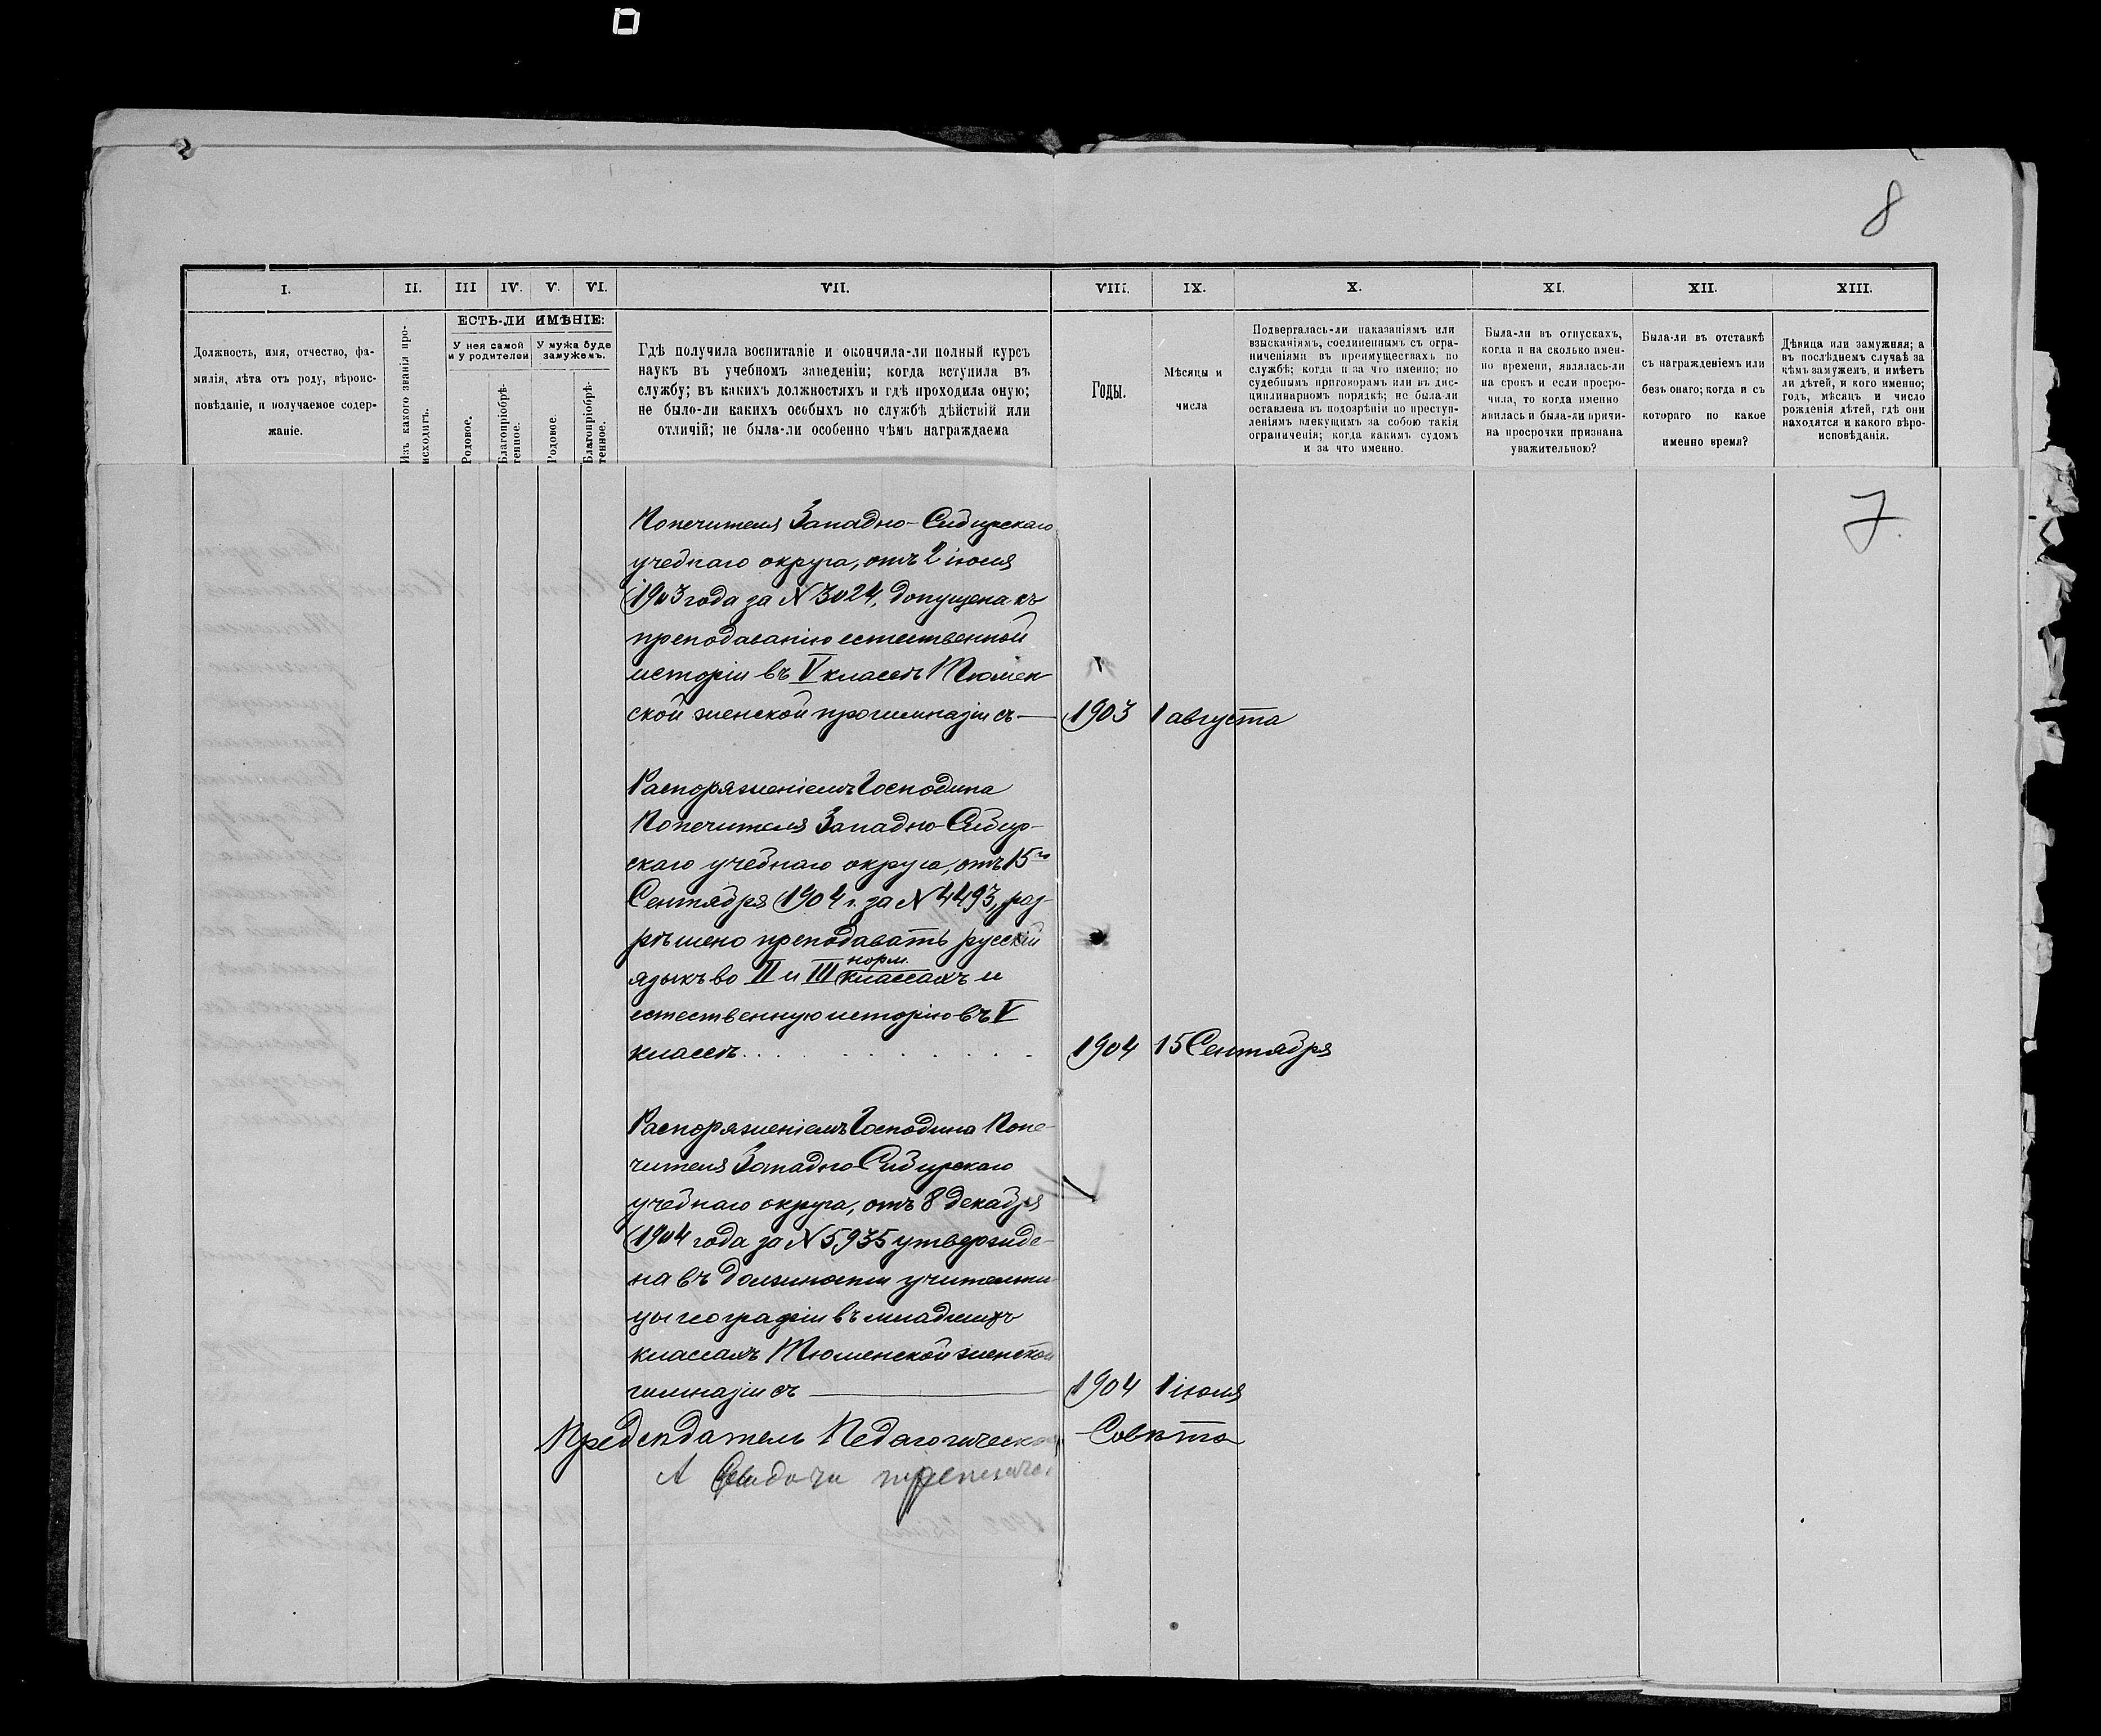 8
I. II. III IV. V. VI. VII. VIII. IX. X. XI. XII. XIII.
Должность, имя, отчество, фа-
милія, лѣта отъ роду, вѣроис-
повѣданіе, и получаемое содер-
жаніе.
Изъ какого званія про-
исходитъ.
ЕСТЬ-ЛИ ИМѢНІЕ:
У нея самой
и у родителей
У мужа буде
замужемъ.
Родовое.
Благопріобрѣ-
тенное.
Родовое.
Благопріобрѣ-
тенное.
Гдѣ получила воспитаніе и окончила-ли полный курсъ
наукъ въ учебномъ заведеніи; когда вступила въ
службу; въ какихъ должностяхъ и гдѣ проходила оную;
не было-ли какихъ особыхъ по службѣ дѣйствій или
отличій; не была-ли особенно чѣмъ награждаема
Годы.
Мѣсяцы и
числа
Подвергалась-ли наказаніямъ или
взысканіямъ, соединеннымъ съ огра-
ниченіями въ преимуществахъ по
службѣ; когда и за что именно; по
судебнымъ приговорамъ или въ дис-
циплинарномъ порядкѣ; не была-ли
оставлена въ подозрѣніи по преступ-
леніямъ влекущимъ за собою такія
ограниченія; когда какимъ судомъ
и за что именно.
Была-ли въ отпускахъ,
когда и на сколько имен-
но времени, являлась-ли
на срокъ и если просро-
чила, то когда именно
явилась и была-ли причи-
на просрочки признана
уважительною?
Была-ли въ отставкѣ
съ награжденіемъ или
безъ онаго; когда и съ
котораго по какое
именно время?
Дѣвица или замужняя; а
въ послѣднемъ случаѣ за
кѣмъ замужемъ, и имѣетъ
ли дѣтей, и кого именно;
годъ, мѣсяцъ и число
рожденія дѣтей, гдѣ они
находятся и какого вѣро-
исповѣданія.
7.
Попечителя Западно-Сибирскаго
учебнаго округа, отъ 2 іюля
1903 года за № 3024, допущена къ
преподаванію естественной
исторіи въ V классѣ Тюмен-
ской женской прогимназіи съ — 1903 1 августа
Распоряженіемъ Господина
Попечителя Западно-Сибир-
скаго учебнаго округа, отъ 15го
Сентября 1904 г. за № 4493, раз-
рѣшено преподавать русскій
языкъ во II и III норм. классахъ и
естественную исторію въ V
классѣ. . . . . . . . . 1904 15 Сентября
Распоряженіемъ Господина Попе-
чителя Западно-Сибирскаго
учебнаго округа, отъ 8 декабря
1904 года за № 5935 утвержде-
на въ должности учительни-
цы географіи въ младшихъ
классахъ Тюменской женской
гимназіи съ — 1904 1 іюля
Предсѣдатель Педагогическаго Совѣта